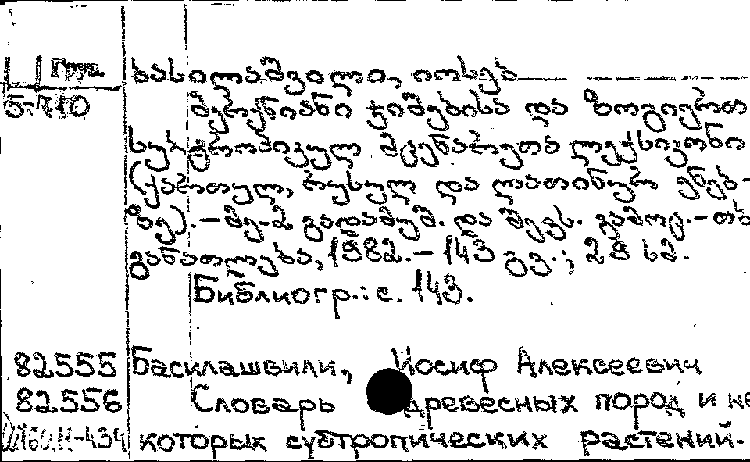 Груз. ბასილაშვილი, იოსებ
Б-710 მერქნიანი ჯიშებისა და ზოგიერთ
სუბტროპიკულ მცენარეთა ლექსიკონი
ქართულ, რუსულ და ლათინურ ენებ-
ზე. – მე-2 გადამუშ. და შევს. გამოც. – თბ
განათლება, 1982. – 143 გვ.; 28 სმ.
Библиогр.: с. 143.
82555 Басилашвили, Иосиф Алексеевич
82556 Словарь древесных пород и не
которых субтропических растений.